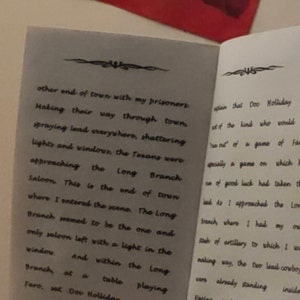 other end of town with my prisoners.
Making their way through town,
spraying lead everywhere, shattering
lights and windows, the Texans were
approaching the Long Branch
Saloon. This is the end of town
where I entered the scene. The Long
Branch seemed to be the one and
only saloon left with a light in the
window. And within the Long
Branch, at a table playing
Faro, sat Doc Holliday
that Doc Holliday
of the kind who would
"run out" of a game of Far
especially a game on which h
run of good luck had taken t
lead. As I approached the Lon
Branch where I had my own
stash of artillery to which I wa
making way, the two lead cowboy
were already standing inside